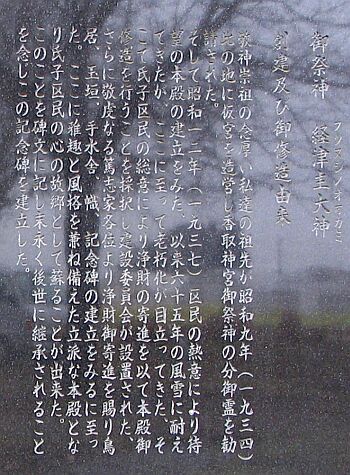 御祭神　経津主大神
フノヌシノオオカミ
創建及び御修造由来
敬神崇祖の念厚い私達の祖先が昭和九年（一九三四）
此の地に仮宮を造営し香取神宮御祭神の分御霊を勧
請された。
そして昭和一二年（一九三七）区民の熱意により待
望の本殿の建立をみた、以来六十五年の風雪に耐え
てきたが、ここに至って老朽化が目立ってきた、そ
こで氏子区民の総意により浄財の寄進を以て本殿御
修造を行うことを採択し建設委員会が設置された、
さらに敬虔なる篤志家各位より浄財御寄進を賜り鳥
居、玉垣、手水舎、幟、記念碑の建立をみるに至っ
た。ここに雅趣と風格を兼ね備えた立派な本殿とな
り氏子区民の心の故郷として蘇ることが出来た。
このことを碑文に記し末永く後世に継承されること
を念じこの記念碑を建立した。